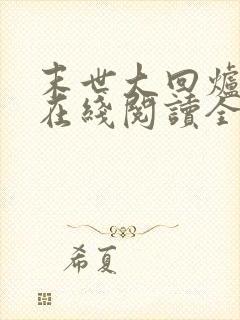 末世大回爐
在綫閱讀全
希夏